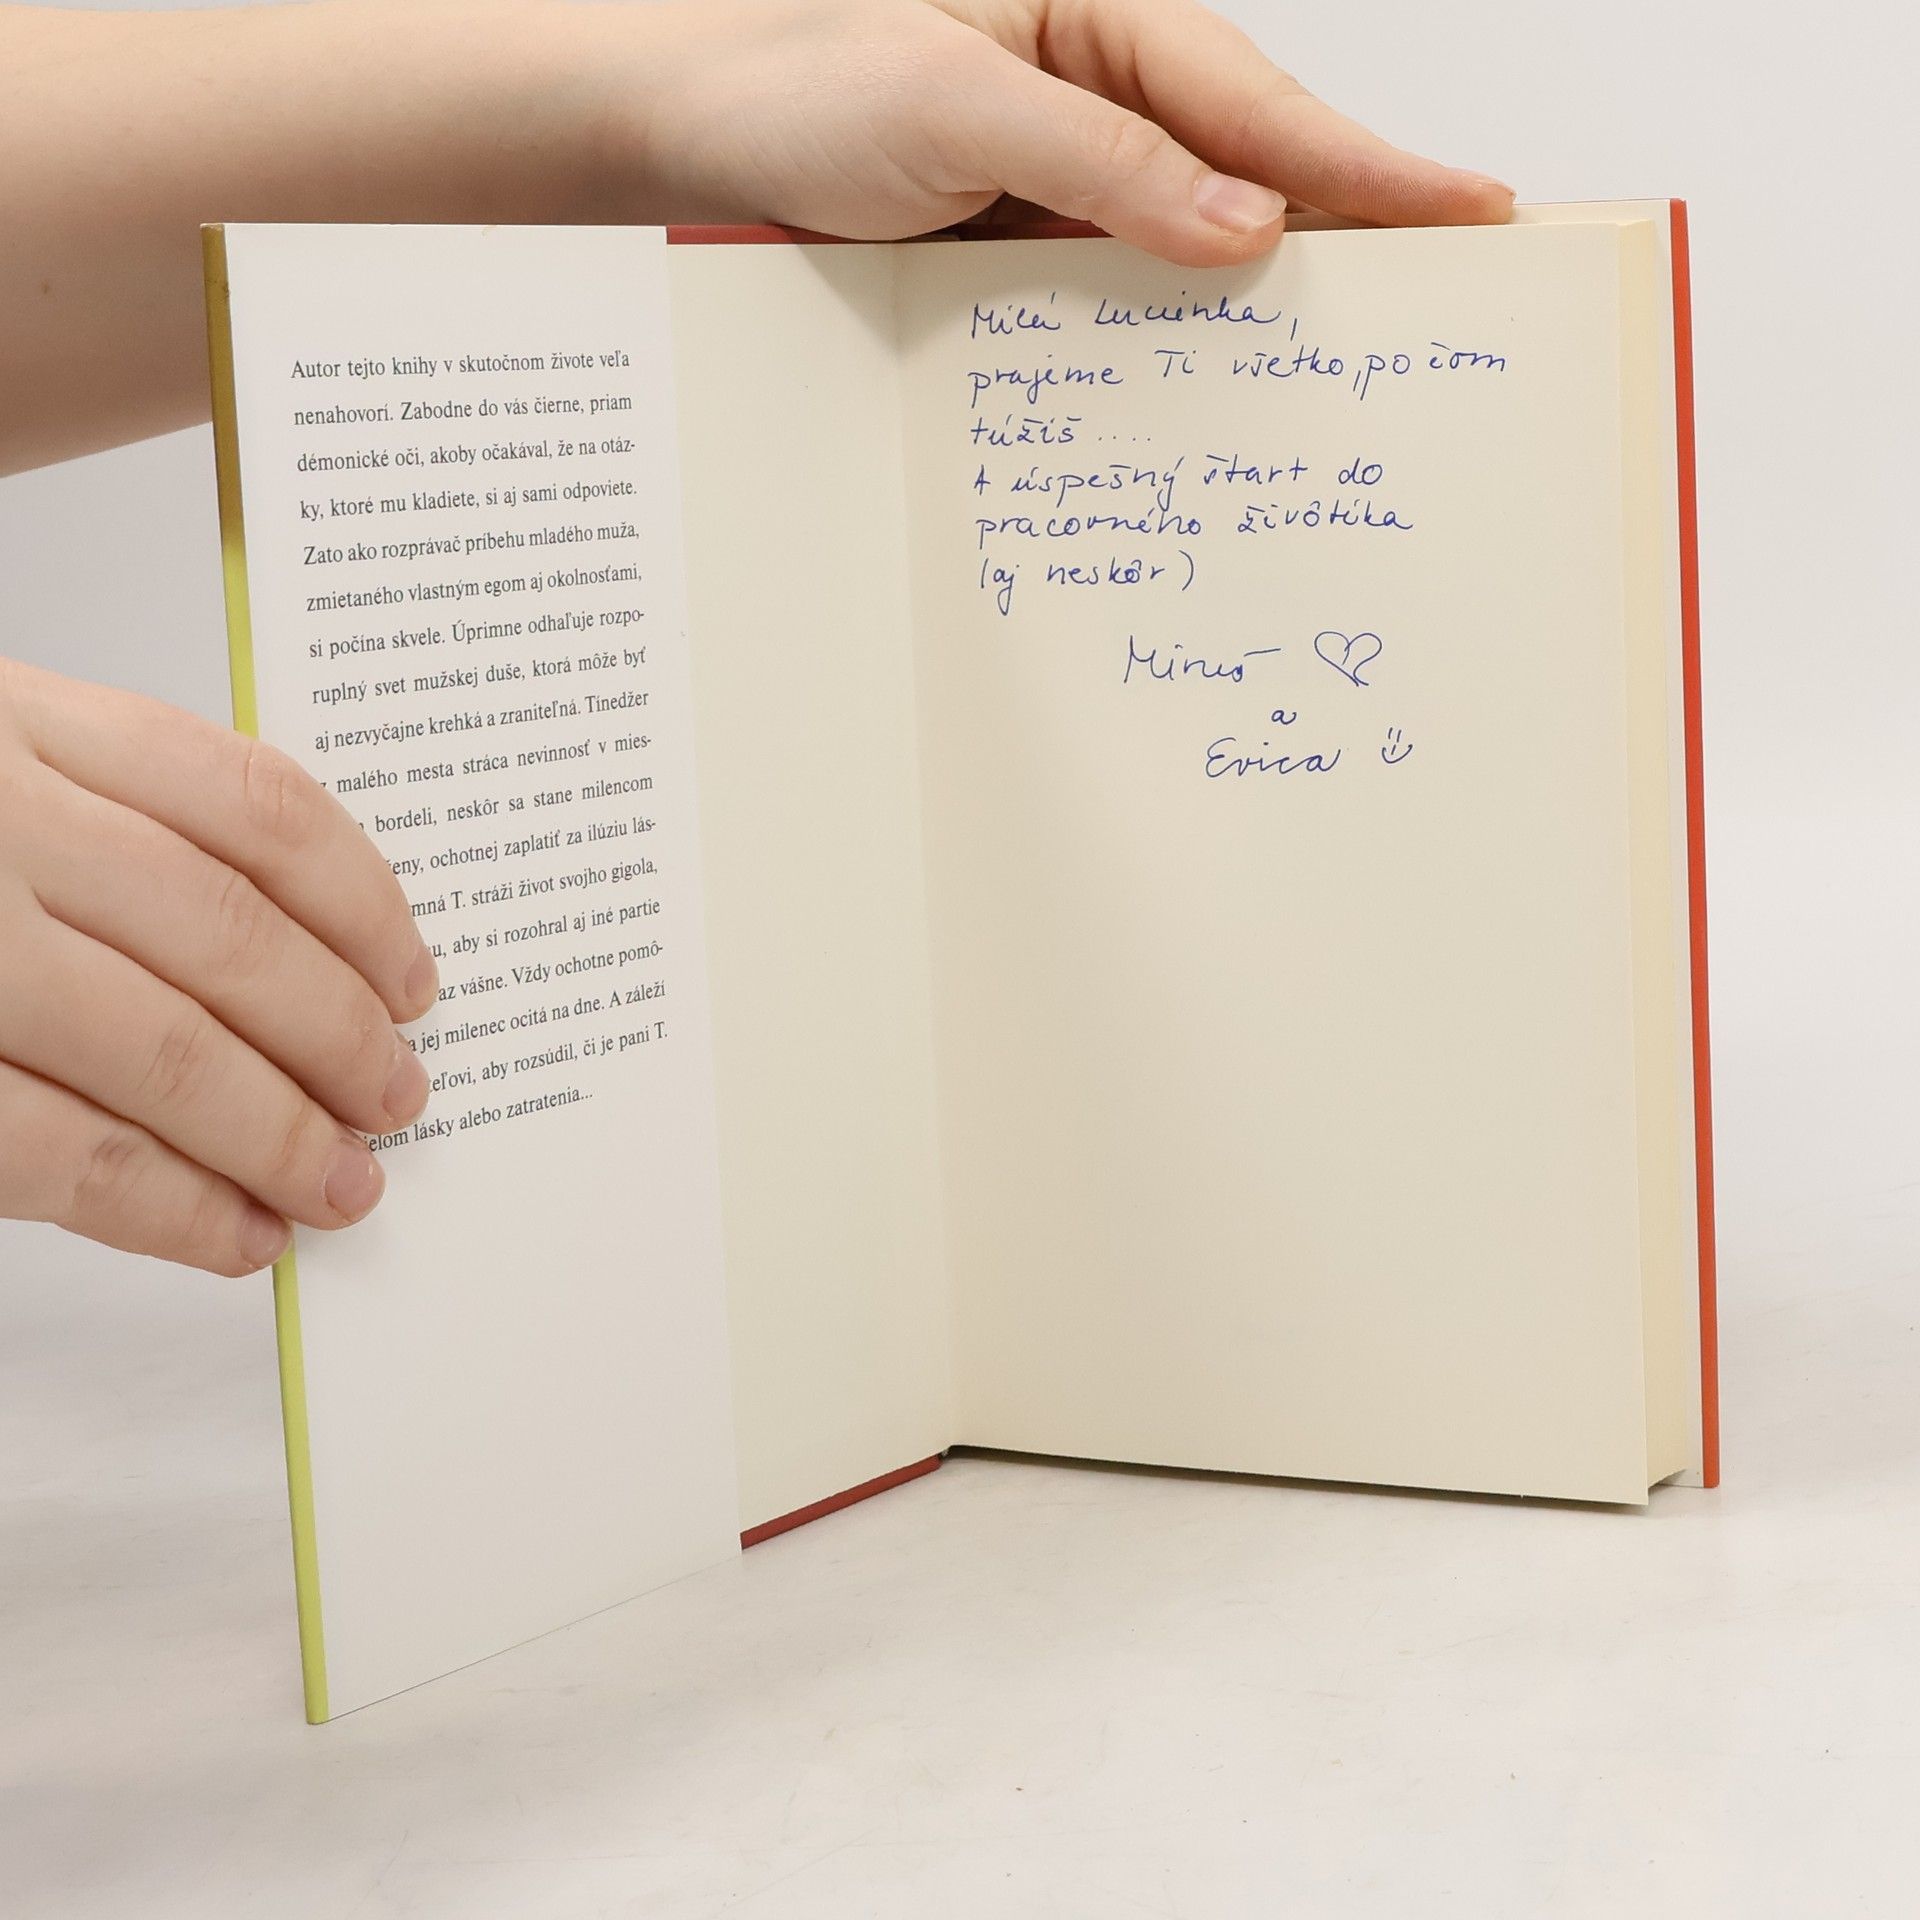 Autor tejto knihy v skutočnom živote veľa
nenahovorí. Zabodne do vás čierne, priam
démonické oči, akoby očakával, že na otáz-
ky, ktoré mu kladiete, si aj sami odpoviete.
Zato ako rozprávač príbehu mladého muža,
zmietaného vlastným egom aj okolnosťami,
si počína skvele. Úprimne odhaľuje rozpo-
ruplný svet mužskej duše, ktorá môže byť
aj nezvyčajne krehká a zraniteľná. Tínedžer
malého mesta stráca nevinnosť v mies-
bordeli, neskôr sa stane milencom
ochotnej zaplatiť za ilúziu lás-
T. stráži život svojho gigola,
aby si rozohral aj iné partie
vášne. Vždy ochotne pomô-
jej milenec ocitá na dne. A záleží
aby rozsúdil, či je pani T.
lásky alebo zatratenia...
Milá Lucienka,
prajeme Ti všetko, po čom
túžiš ....
A úspešný štart do
pracovného živôtika
(aj neskôr)
a
Evica